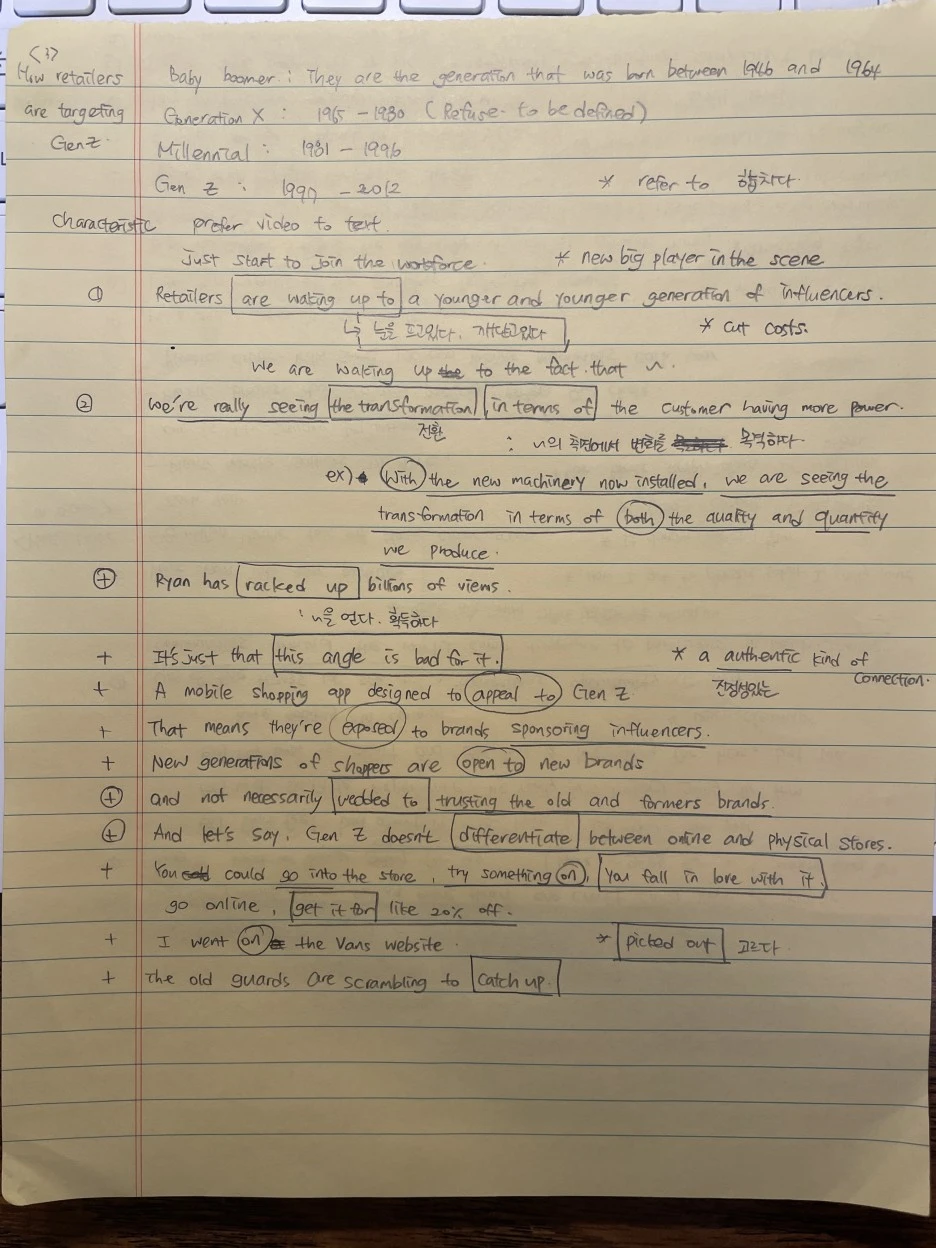 <3>
How retailers are targeting Gen Z.
Baby boomer : They are the generation that was born between 1946 and 1964
Generation X : 1965 - 1980 (Refuse to be defined)
Millennial : 1981 - 1996
Gen Z : 1997 - 2012 * refer to
Characteristic prefer video to text.
Just start to join the workforce. * new big player in the scene
① Retailers are waking up to a younger and younger generation of influencers.
↳ 눈을 뜨고있다. 깨닫고있다 * cut costs.
We are waking up to the fact that ~.
② we're really seeing the transformation in terms of the customer having more power.
전환 : ~의 측면에서 변화를 목격하다.
ex) With the new machinery now installed, we are seeing the
transformation in terms of both the quality and quantity
we produce.
+ Ryan has racked up billions of views.
: ~을 얻다. 획득하다
+ It's just that this angle is bad for it. * a authentic kind of connection.
+ A mobile shopping app designed to appeal to Gen Z. 진정성있는
+ That means they're exposed to brands sponsoring influencers.
+ New generations of shoppers are open to new brands
+ and not necessarily wedded to trusting the old and formers brands.
+ And let's say, Gen Z doesn't differentiate between online and physical stores.
+ You could go into the store, try something on, You fall in love with it,
go online, get it for like 20% off.
+ I went on the Vans website. * picked out 고르다.
+ The old guards are scrambling to catch up.